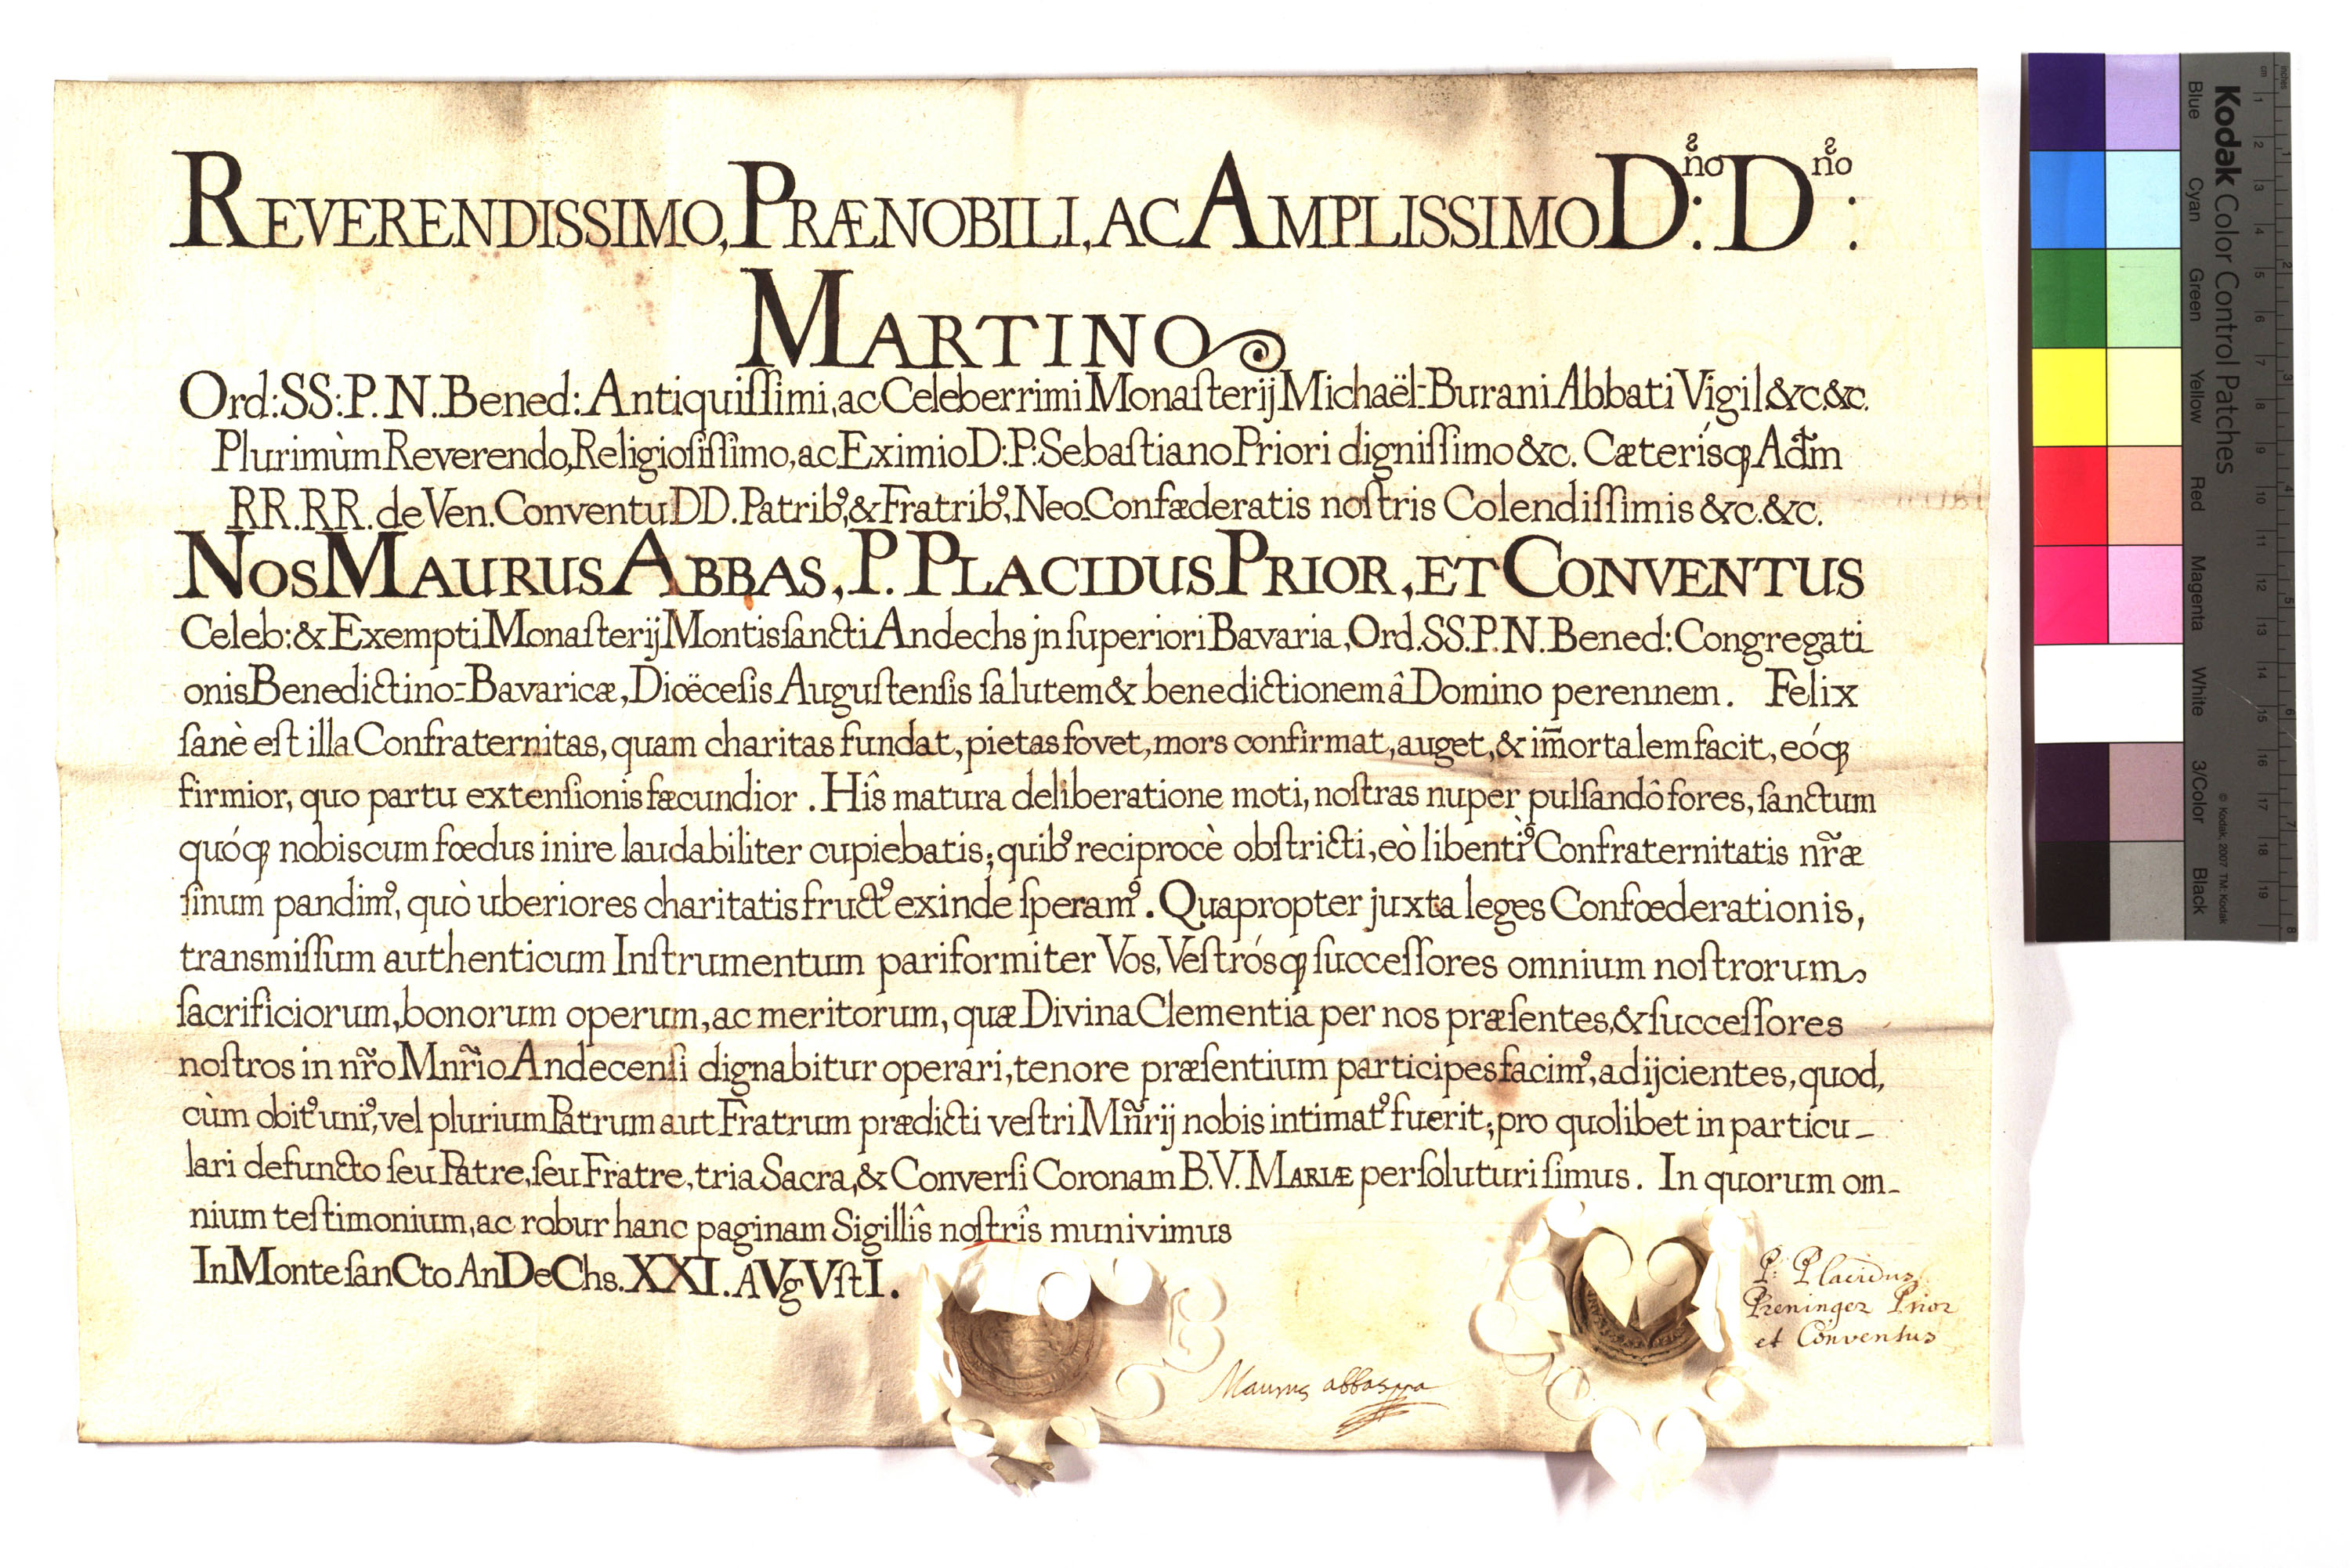 REVERENDISSIMO, PRÆNOBILI, AC AMPLISSIMO D:ño D:ño
MARTINO
Ord: SS: P. N. Bened: Antiquiſſimi, ac Celeberrimi Monaſterij Michaël-Burani Abbati Vigil. &c. &c.
Plurimùm Reverendo, Religioſiſſimo, ac Eximio D: P: Sebaſtiano Priori digniſſimo &c. Cæterísq3 Adm̃
RR. RR. de Ven. Conventu DD. Patribꝰ, & Fratribꝰ, Neo-Confæderatis noſtris Colendiſſimis &c. &c.
NOS MAURUS ABBAS, P. PLACIDUS PRIOR, ET CONVENTUS
Celeb: & Exempti Monaſterij Montis ſancti Andechs jn ſuperiori Bavaria, Ord. SS. P. N. Bened: Congregati
onis Benedictino-Bavaricæ, Diœceſis Auguſtenſis ſalutem & benedictionem â Domino perennem. Felix
ſanè eſt illa Confraternitas, quam charitas fundat, pietas fovet, mors confirmat, auget, & im̄ortalem facit, eóq3
firmior, quo partu extenſionis fæcundior. Hîs matura deliberatione moti, noſtras nuper pulſandô fores, ſanctum
quóq3 nobiscum fœdus inire laudabiliter cupiebatis; quibꝰ reciprocè obſtricti, eò libentiꝰ Confraternitatis nr̃æ
ſinum pandimꝰ, quò uberiores charitatis fructꝰ exinde ſperamꝰ. Quapropter juxta leges Confœderationis,
transmiſſum authenticum Inſtrumentum pariformiter Vos, Veſtrósq3 ſucceſſores omnium noſtrorum
ſacrificiorum, bonorum operum, ac meritorum, quæ Divina Clementia per nos præſentes, & ſucceſſores
noſtros in nr̃o Mnr̃io Andecenſi dignabitur operari, tenore præſentium participes facimꝰ, adijcientes, quod,
cùm obitꝰ uniꝰ, vel plurium Patrum aut Fratrum prædicti veſtri Mñrij nobis intimatꝰ fuerit; pro quolibet in particu-
lari defuncto ſeu Patre, ſeu Fratre, tria Sacra, & Converſi Coronam B. V. MARIÆ perſoluturi ſimus. In quorum om-
nium teſtimonium, ac robur hanc paginam Sigillîs noſtrîs munivimus
In Monte ſanCto AnDeChs. XXI. AVgVſtI.
P: Placidus
Preninger Prior
et Conventus
Maurus abbas
Kodak Color Control Patches
Blue Cyan Green Yellow Red Magenta White 3/Color Black
© Kodak, 2007 TM: Kodak
inches 1 2 3 4 5 6 7 8
cm 1 2 3 4 5 6 7 8 9 10 11 12 13 14 15 16 17 18 19